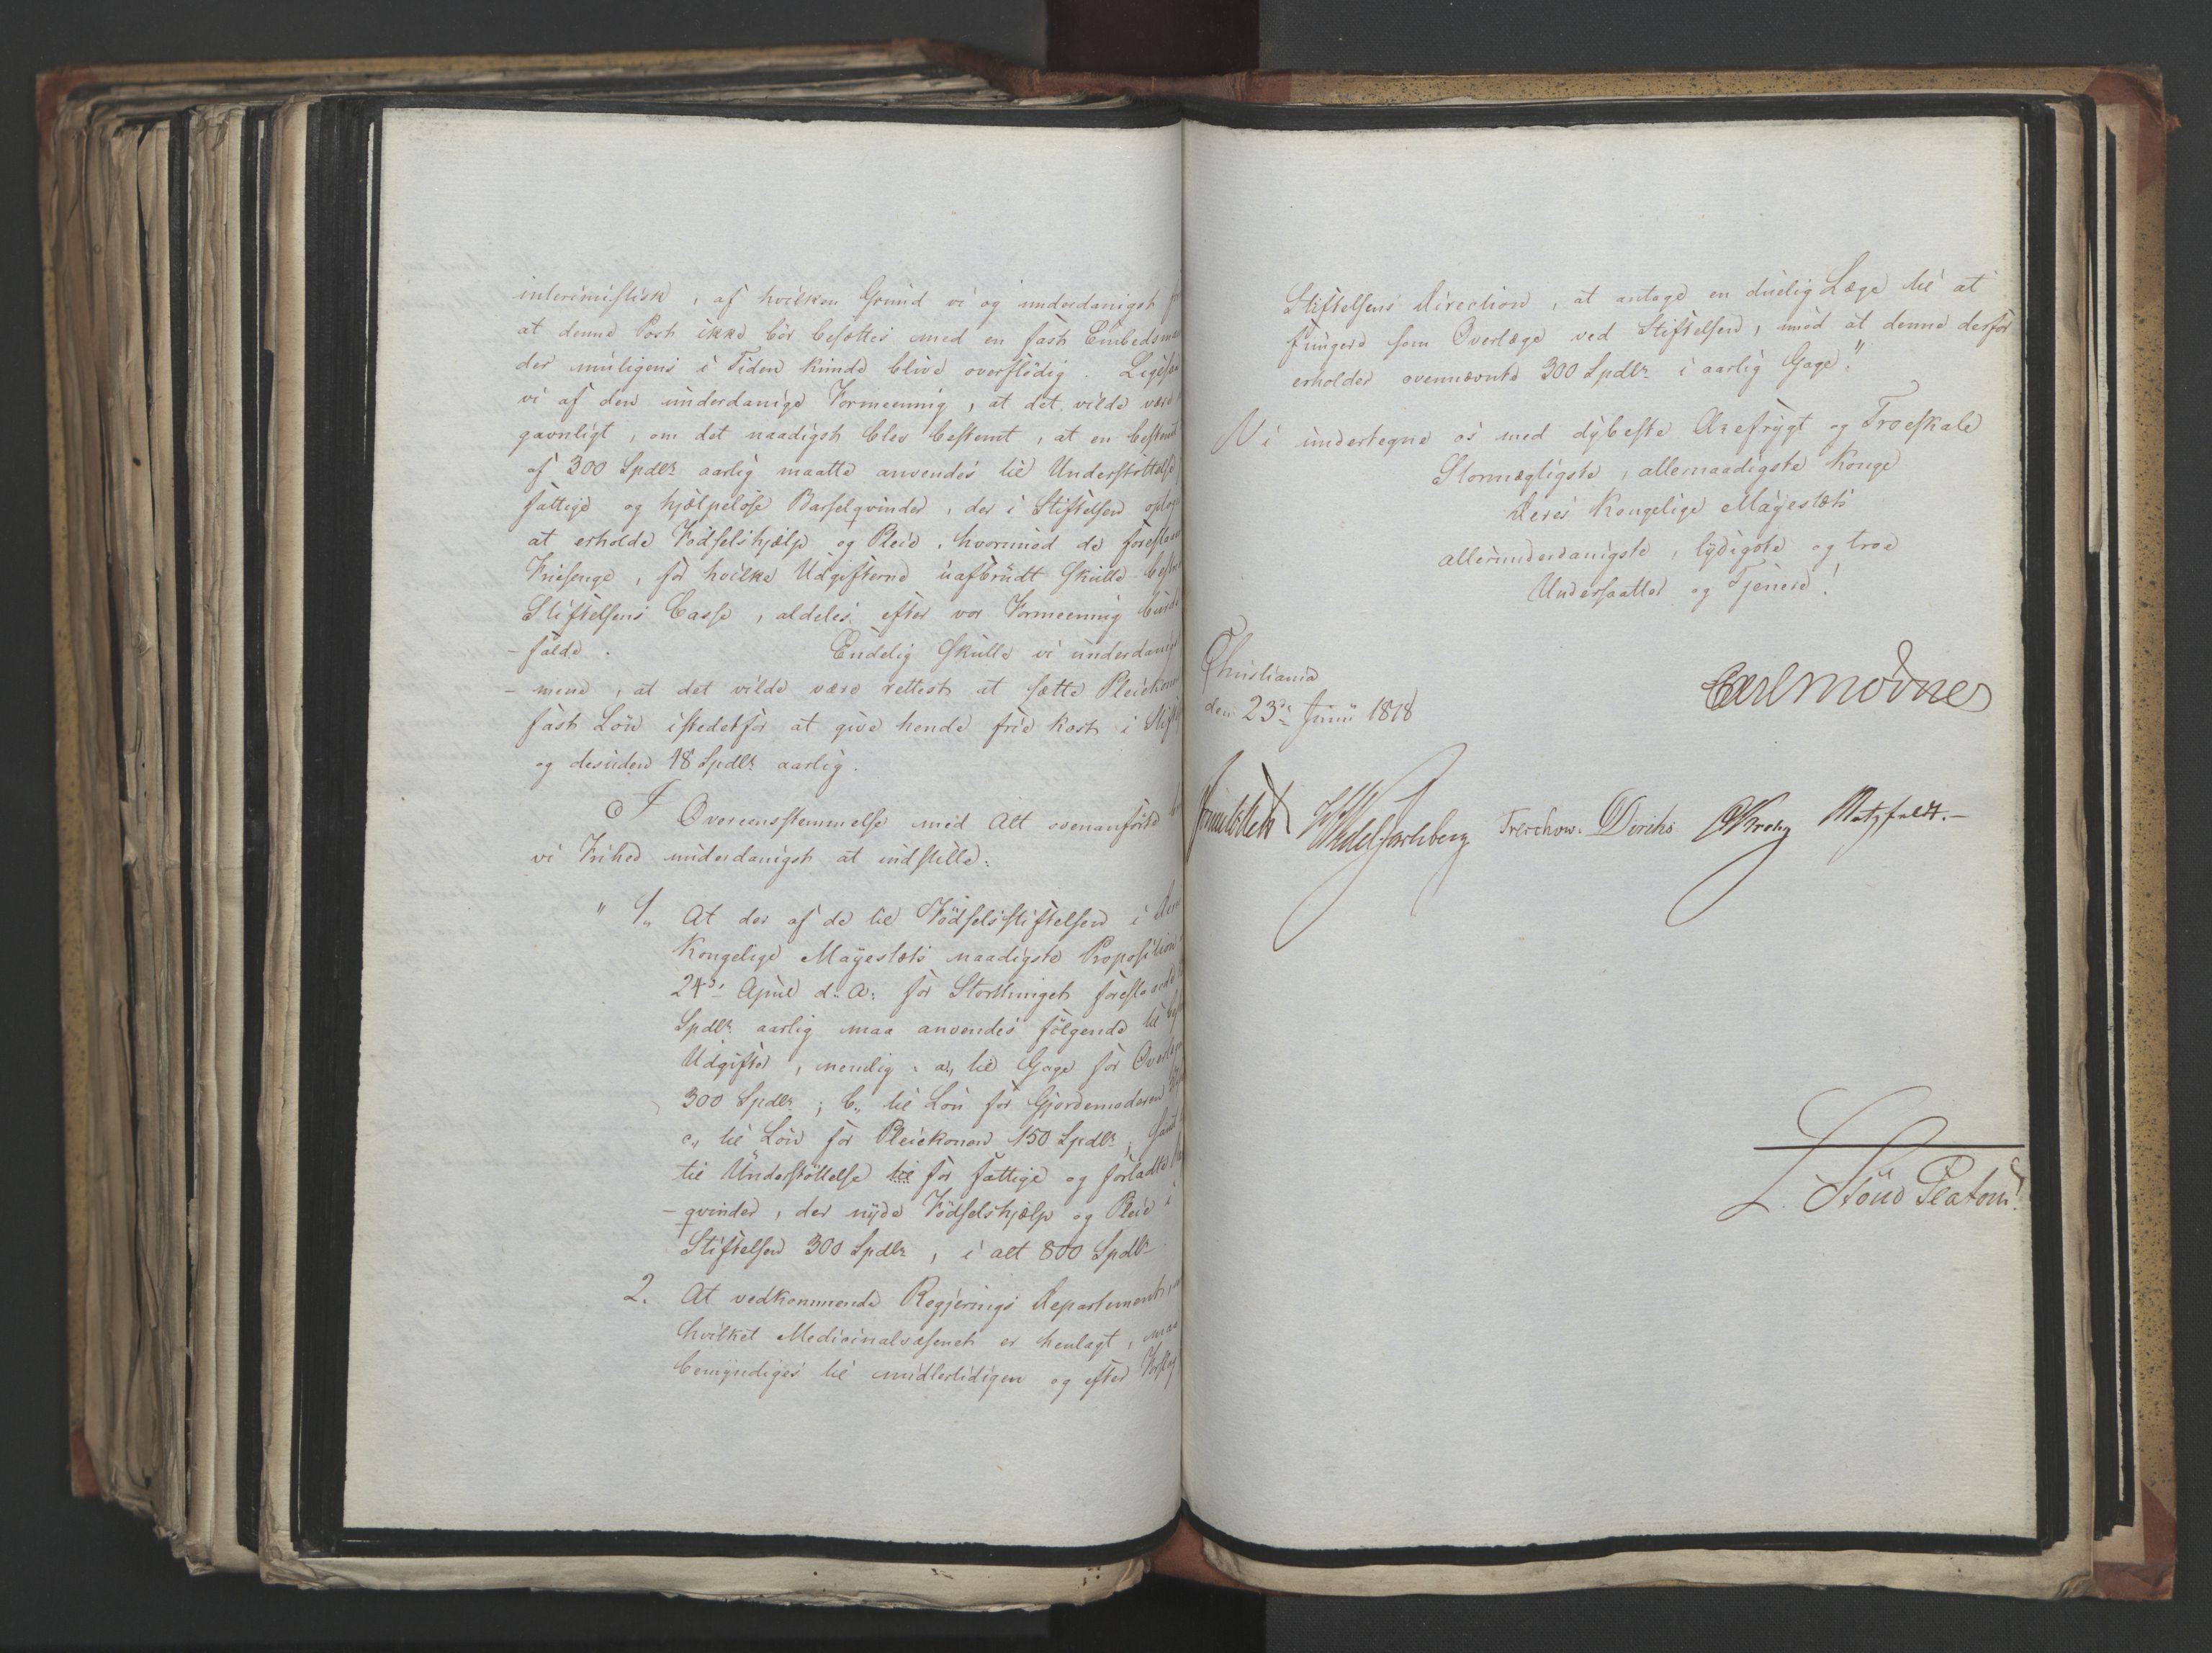 interimistisk, af hvilken Grund vi og underdanigst
at denne Post ikke bör besættes med en fast Embedsm
der muligens i Tiden kunde blive overflödig. Ligesaa
vi af den underdanige Formeening, at det vilde være
gavnligt, om det naadigst blev bestemt, at en bestemt
af 300 Spdlr aarlig maatte anvendes til Understöttelse
fattige og hjælpelöse Barselqvinder, der i Stiftelsen optag
at erholde Födselshjælp og Pleie, hvorimod de foreslaae
Friesenge, for hvilke Udgifterne uafbrudt skulde best
Stiftelsens Casse, aldeles efter vor Formeening burde
-falde. Endelig skulle vi underdanigst
-mene, at det vilde være rettest at sætte Pleiekone
fast Lön istedetfor at give hende frie Kost i Stift
og desuden 48 Spdlr aarlig.
I Overeensstemmelse med Alt ovenanförte
vi Frihed underdanigst at indstille:
" 1., At der af de til Födselsstiftelsen i Deres
Kongelige Mayestæts naadigste Proposition
24de April d: A: for Storthinget foreslaaede
Spdlr aarlig maa anvendes fölgende til
Udgifter, nemlig: a., til Gage for Overlæge
300 Spdlr; b., til Lön for Gjordemoderen
c., til Lön for Pleiekonen 150 Spdlr; samt
til Understöttelse til for fattige og forladte
-qvinder, der nyde Födselshjælp og Pleie i
Stiftelsen 300 Spdlr, i alt 800 Spdlr
2. At vedkommende Regjerings Departement,
hvilket Medicinalvæsenet er henlagt, maa
bemyndiges til midlertidigen og efter Forslag
Stiftelsens Direction, at antage en duelig Læge til at
fungere som Overlæge ved Stiftelsen, imod at denne derfor
erholder ovennævnte 300 Spdlr i aarlig Gage."
Vi undertegne os med dybeste Ærefrygt og Troeskab
Stormægtigste, allernaadigste Konge
Deres Kongelige Mayestæts
allerunderdanigste, lydigste og troe
Undersaatter og Tjenere!
Christiania
den 23de Junii 1818
Carl Mörner
Sommerhielm Wedel Jarlsberg Treschow. Diriks Krohg Motzfeldt.-
L. Stoud Platou